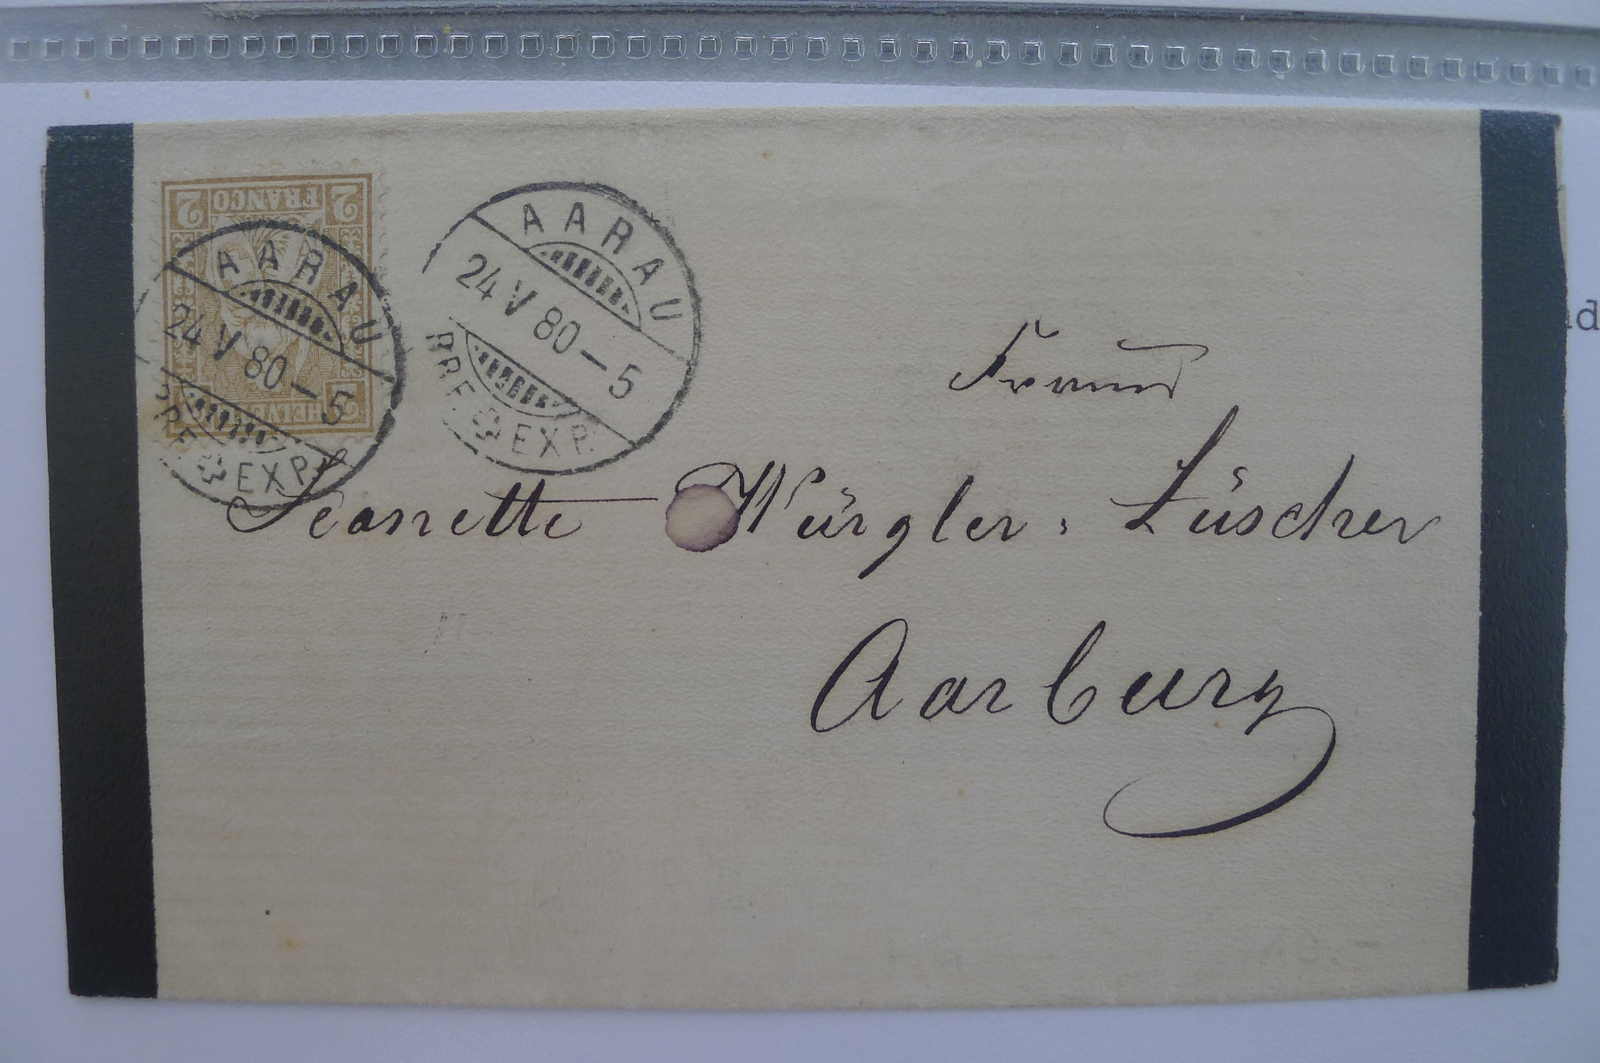 2 FRANCO 2
2 HELVE 2
AARAU
24 V 80–5
BRF. EXP.
AARAU
24 V 80–5
BRF. EXP.
Jeanette Würgler-Lüscher
Aarburg